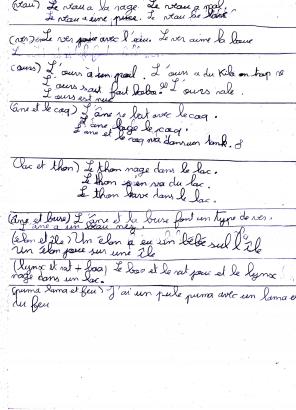 (veau) Le veau a la rage. Le veau a mal.
Le veau a une puce. Le veau se
(ver) Le ver joue avec l'eau. Le ver aime la boue
(ours) L'ours a un poil. L'ours a du kilo en trop
L'ours saut fait bobo. L'ours rale.
L'ours est nue
(âne et le coq) L'âne se bat avec le coq.
L'âne le coq.
L'âne et le coq va dans un tank.
(lac et thon) Le thon nage dans le lac.
Le thon va du lac.
Le thon dans le lac.
(âne et buse) L'âne et la buse font un type de ver.
L'âne a un beau nez.
(élan et île) Un élan a eu un bébé sur l'île
Un élan joue sur une île
(lynx et rat + boa) Le boa et le rat joue et le lynx
nage dans un lac.
(puma lama et feu) J'ai un puma avec un lama et
du feu